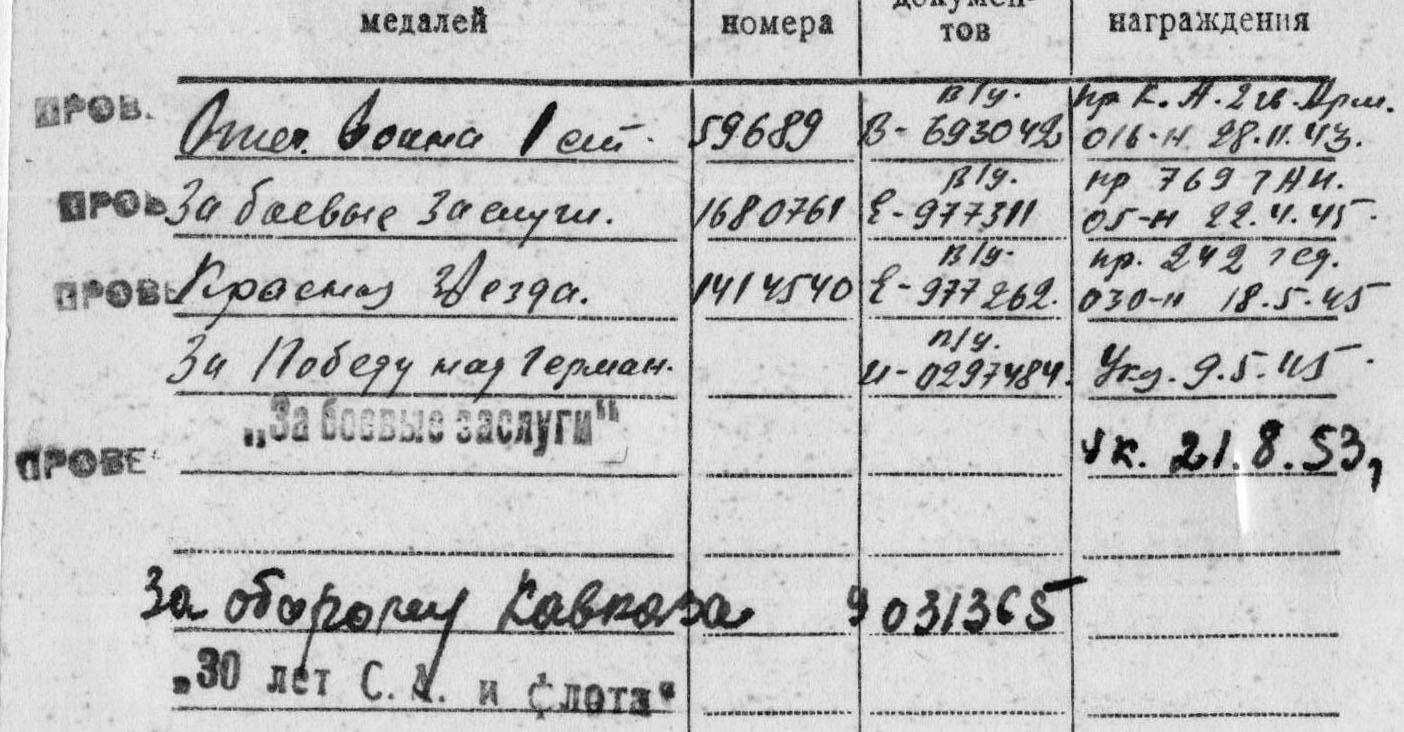 медалей номера докумен-тов награждения
ПРОВ. Отеч. война 1 ст. 59689 в/у. В-693042 пр К. А. 2 гв. Арм. 016-н 28.11.43.
ПРОВ За боевые заслуги. 1680761 в/у. Е-977311 пр 769 гАп. 05-н 22.4.45.
ПРОВЕ Красная Звезда. 1414540 в/у. Е-977262. пр. 242 гсд. 030-н 18.5.45
За Победу над Герман. п/у. И-0297484. Указ. 9.5.45.
„За боевые заслуги“
ПРОВЕ ук. 21.8.53,
За оборону Кавказа 9 031365
„30 лет С. А. и Флота“